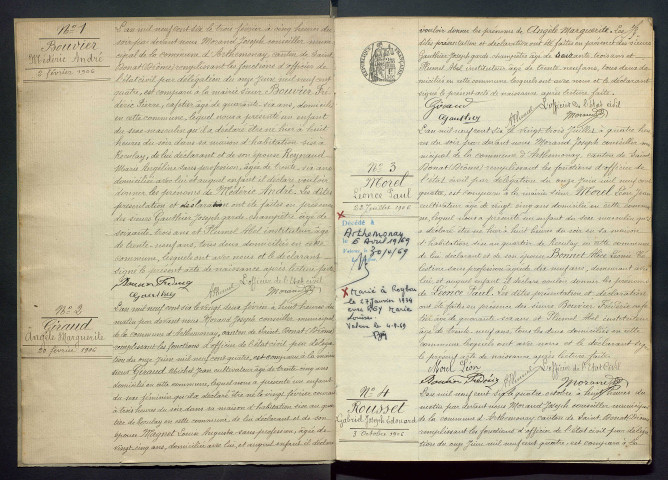 N° 1
Bouvier
Médéric André
2 février 1906
L'an mil neuf cent six le trois février à cinq heures du
soir par devant nous Morand Joseph conseiller muni-
cipal de la commune d'Arthemonay, canton de Saint
Donat (Drôme) remplissant les fonctions d'officier de
l'état civil par délégation du onze juin mil neuf cent
quatre, est comparu à la mairie sieur Bouvier Fré-
déric Pierre, cafetier âgé de quarante six ans, domicilié
en cette commune, lequel nous a présenté un enfant
du sexe masculin qu'il a déclaré être né hier à huit
heures du soir dans sa maison d'habitation sise à
Koulay, de lui déclarant et de son épouse Reynaud
Marie Angéline sans profession, âgée de trente six ans
domiciliée avec lui et auquel enfant il a déclaré vouloir
donner les prénoms de Médéric André. Les dites
présentation et déclaration ont été faites en présence
des sieurs Gauthier Joseph garde champêtre âgé de
soixante trois ans et Plumel Abel instituteur âgé
de trente neuf ans, tous deux domiciliés en cette
commune, lesquels ont avec nous et le déclarant
signé le présent acte de naissance après lecture faite.
Bouvier Frédéric
L'officier de l'Etat civil
Gauthier
A Plumel
Morand
N° 2
Giraud
Angèle Marguerite
20 février 1906
L'an mil neuf cent six le vingt deux février à huit heures du
matin par devant nous Morand Joseph conseiller municipal
de la commune d'Arthemonay, canton de Saint Donat (Drôme)
remplissant les fonctions d'officier de l'état civil par déléga-
tion du onze juin mil neuf cent quatre, est comparu à la mairie
sieur Giraud
âgé de trente cinq ans
domicilié en cette commune, lequel nous a présenté un enfant
du sexe féminin qu'il a déclaré être né le vingt février courant
à trois heures du soir dans sa maison d'habitation sise au quar-
tier de Koulay en cette commune, de lui déclarant et de son
épouse Magnet Louise Augusta sans profession, âgée de
vingt cinq ans, domiciliée avec lui, et auquel enfant il a déclaré
vouloir donner les prénoms de Angèle Marguerite. Les
dites présentation et déclaration ont été faites en présence des sieurs
Gauthier Joseph garde champêtre âgé de soixante trois ans et
Plumel Abel instituteur âgé de trente neuf ans, tous deux do-
miciliés en cette commune lesquels ont avec nous et le déclarant
signé le présent acte de naissance après lecture faite.
Giraud
L'officier de l'Etat civil
Gauthier
A Plumel
Morand
REPUBLIQUE FRANÇAISE
N° 3
Morel
Léonce Paul
22 Juillet 1906
Décédé à
Arthemonay
le 6 Avril 1969
30/4/69
Marié à Roybon
le 27 Janvier 1934
avec REY Marie
Louise
Valence le 4-9-69
L'an mil neuf cent six le vingt trois juillet à quatre heu-
res du soir par devant nous Morand Joseph conseiller mu-
nicipal de la commune d'Arthemonay, canton de Saint
Donat (Drôme) remplissant les fonctions d'officier de
l'état civil par délégation du onze juin mil neuf cent
quatre, est comparu à la mairie sieur Morel Léon Jean
cultivateur âgé de vingt cinq ans domicilié en cette commune,
lequel nous a présenté un enfant du sexe masculin qu'il
a déclaré être né hier à huit heures du soir dans sa maison
d'habitation sise au quartier de Koulay en cette commune
de lui déclarant et de son épouse Bonnet
sans profession âgée de vingt ans, demeurant avec
lui, et auquel enfant il a déclaré vouloir donner les prénoms
de Léonce Paul. Les dites présentation et déclaration ont
été faites en présence des sieurs Bouvier Frédéric cafe-
tier âgé de quarante six ans et Plumel Abel instituteur
âgé de trente neuf ans, tous les deux domiciliés en cette
commune lesquels ont avec nous et le déclarant si-
gné le présent acte de naissance après lecture faite.
Morel Léon
L'officier de l'Etat Civil
Bouvier Frédéric
A Plumel
Morand
N° 4
Rousset
Gabriel Joseph Edouard
3 Octobre 1906
L'an mil neuf cent six le quatre octobre à heures du
matin par devant nous Morand Joseph conseiller municipal
de la commune d'Arthemonay canton de Saint Donat (Drôme)
remplissant les fonctions d'officier de l'état civil par déléga-
tion du onze juin mil neuf cent quatre, est comparu à la